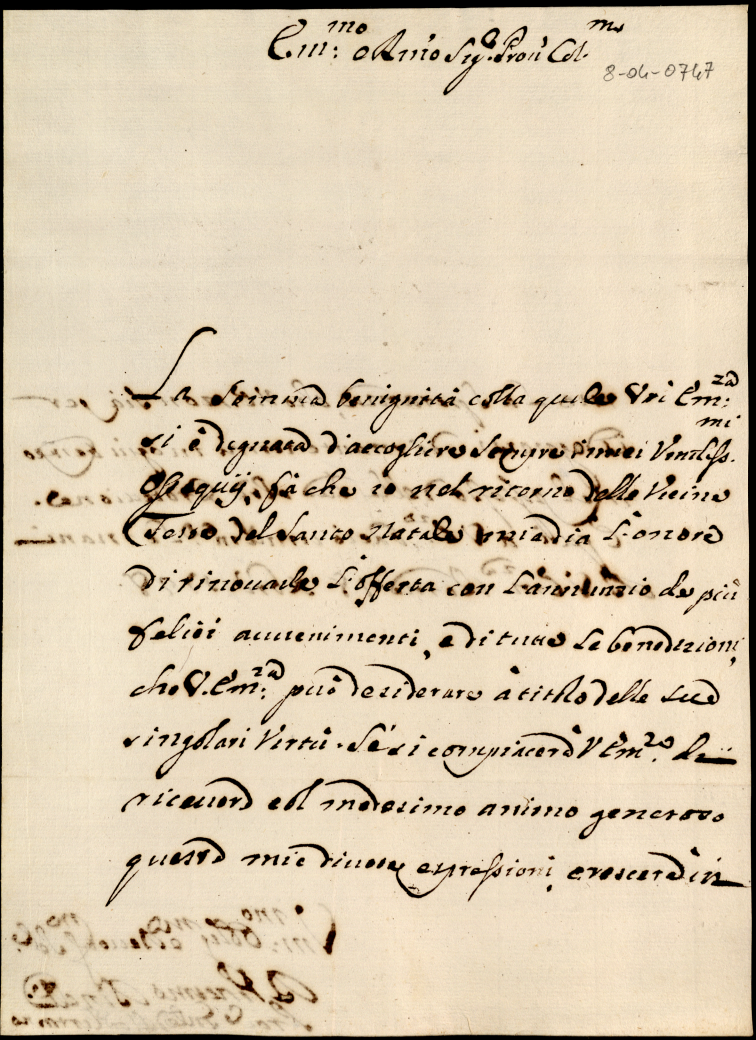 E.m:mo e R.mo Sig.r Pron Col.mo
8-04-0747
La somma benignità colla quale Vra Em:za
si è degnata d'accogliere sempre i miei Umiliss.mi
Ossequij, fà che io nel ritorno delle Vicine
Feste del Santo Natale mi dia L'onore
di rinouarle L'offerta con L'annunzio de più
felici auuenimenti, e di tutte Le benedizioni,
che V. Em:za può desiderare à titolo delle sue
singolari Virtù. Se si compiacerà V Em.za de
riceuere col medesimo animo generoso
queste mie diuote espressioni, crescerà in